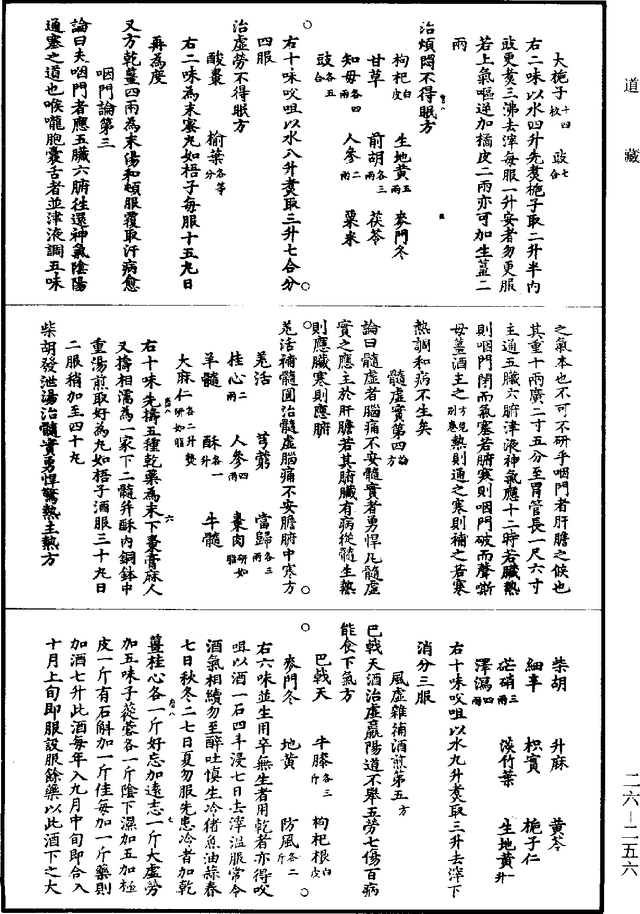 道藏
大梔子十四枚　豉七合
右二味以水四升先煑梔子取二升半內
豉更煑三沸去滓每服一升安者勿更服
若上氣嘔逆加橘皮二兩亦可加生薑二
兩
治煩悶不得眠方
枸杞白皮　生地黃五兩　麥門冬
甘草　前胡各三兩　茯苓
知母各四兩　人參二兩　粟米
豉各五合
右十味㕮咀以水八升煑取三升七合分
四服
治虛勞不得眠方
酸棗　榆葉各等分
右二味為末蜜丸如梧子每服十五丸日
再為度
又方乾薑四兩為末湯和頓服覆取汗病愈
咽門論第三
論曰夫咽門者應五臟六腑往還神氣陰陽
通塞之道也喉嚨胞囊舌者並津液調五味
之氣本也不可不研乎咽門者肝膽之候也
其重十兩廣二寸五分至胃管長一尺六寸
主通五臟六腑津液神氣應十二時若臟熱
則咽門閉而氣塞若腑寒則咽門破而聲嘶
母薑酒主之方見別卷熱則通之寒則補之若寒
熱調和病不生矣
髓虛實第四論方
論曰髓虛者腦痛不安髓實者勇悍凡髓虛
實之應主於肝膽若其腑臟有病從髓生熱
則應臟寒則應腑
羗活補髓圓治髓虛腦痛不安膽腑中寒方
羗活　芎藭　當歸各三兩
桂心二兩　人參四兩　棗肉研如脂
羊髓　酥各一升　牛髓
大麻仁各二升熬研如脂
右十味先擣五種乾藥為末下棗膏麻人
又擣相濡為一家下二髓并酥內銅鉢中
重湯煎取好為丸如梧子酒服三十丸日
二服稍加至四十丸
柴胡發泄湯治髓實勇悍驚熱主熱方
柴胡　升麻　黃芩
細辛　枳實　梔子仁
芒硝三兩　淡竹葉　生地黃各一升
澤瀉四兩
右十味㕮咀以水九升煑取三升去滓下
消分三服
風虛雜補酒煎第五方
巴戟天酒治虛羸陽道不舉五勞七傷百病
能食下氣方
巴戟天　牛膝各三斤　枸杞根白皮
麥門冬　地黃　防風各二斤
右六味並生用卒無生者用乾者亦得㕮
咀以酒一石四斗浸七日去滓溫服常令
酒氣相續勿至醉吐慎生冷猪魚油蒜春
七日秋冬二七日夏勿服先患冷者加乾
薑桂心各一斤好忘加遠志一斤大虛勞
加五味子蓯蓉各一斤陰下濕加五加根
皮一斤有石斛加一斤佳每加一斤藥則
加酒七升此酒每年入九月中旬即合入
十月上旬即服設服餘藥以此酒下之大
二六—二五六